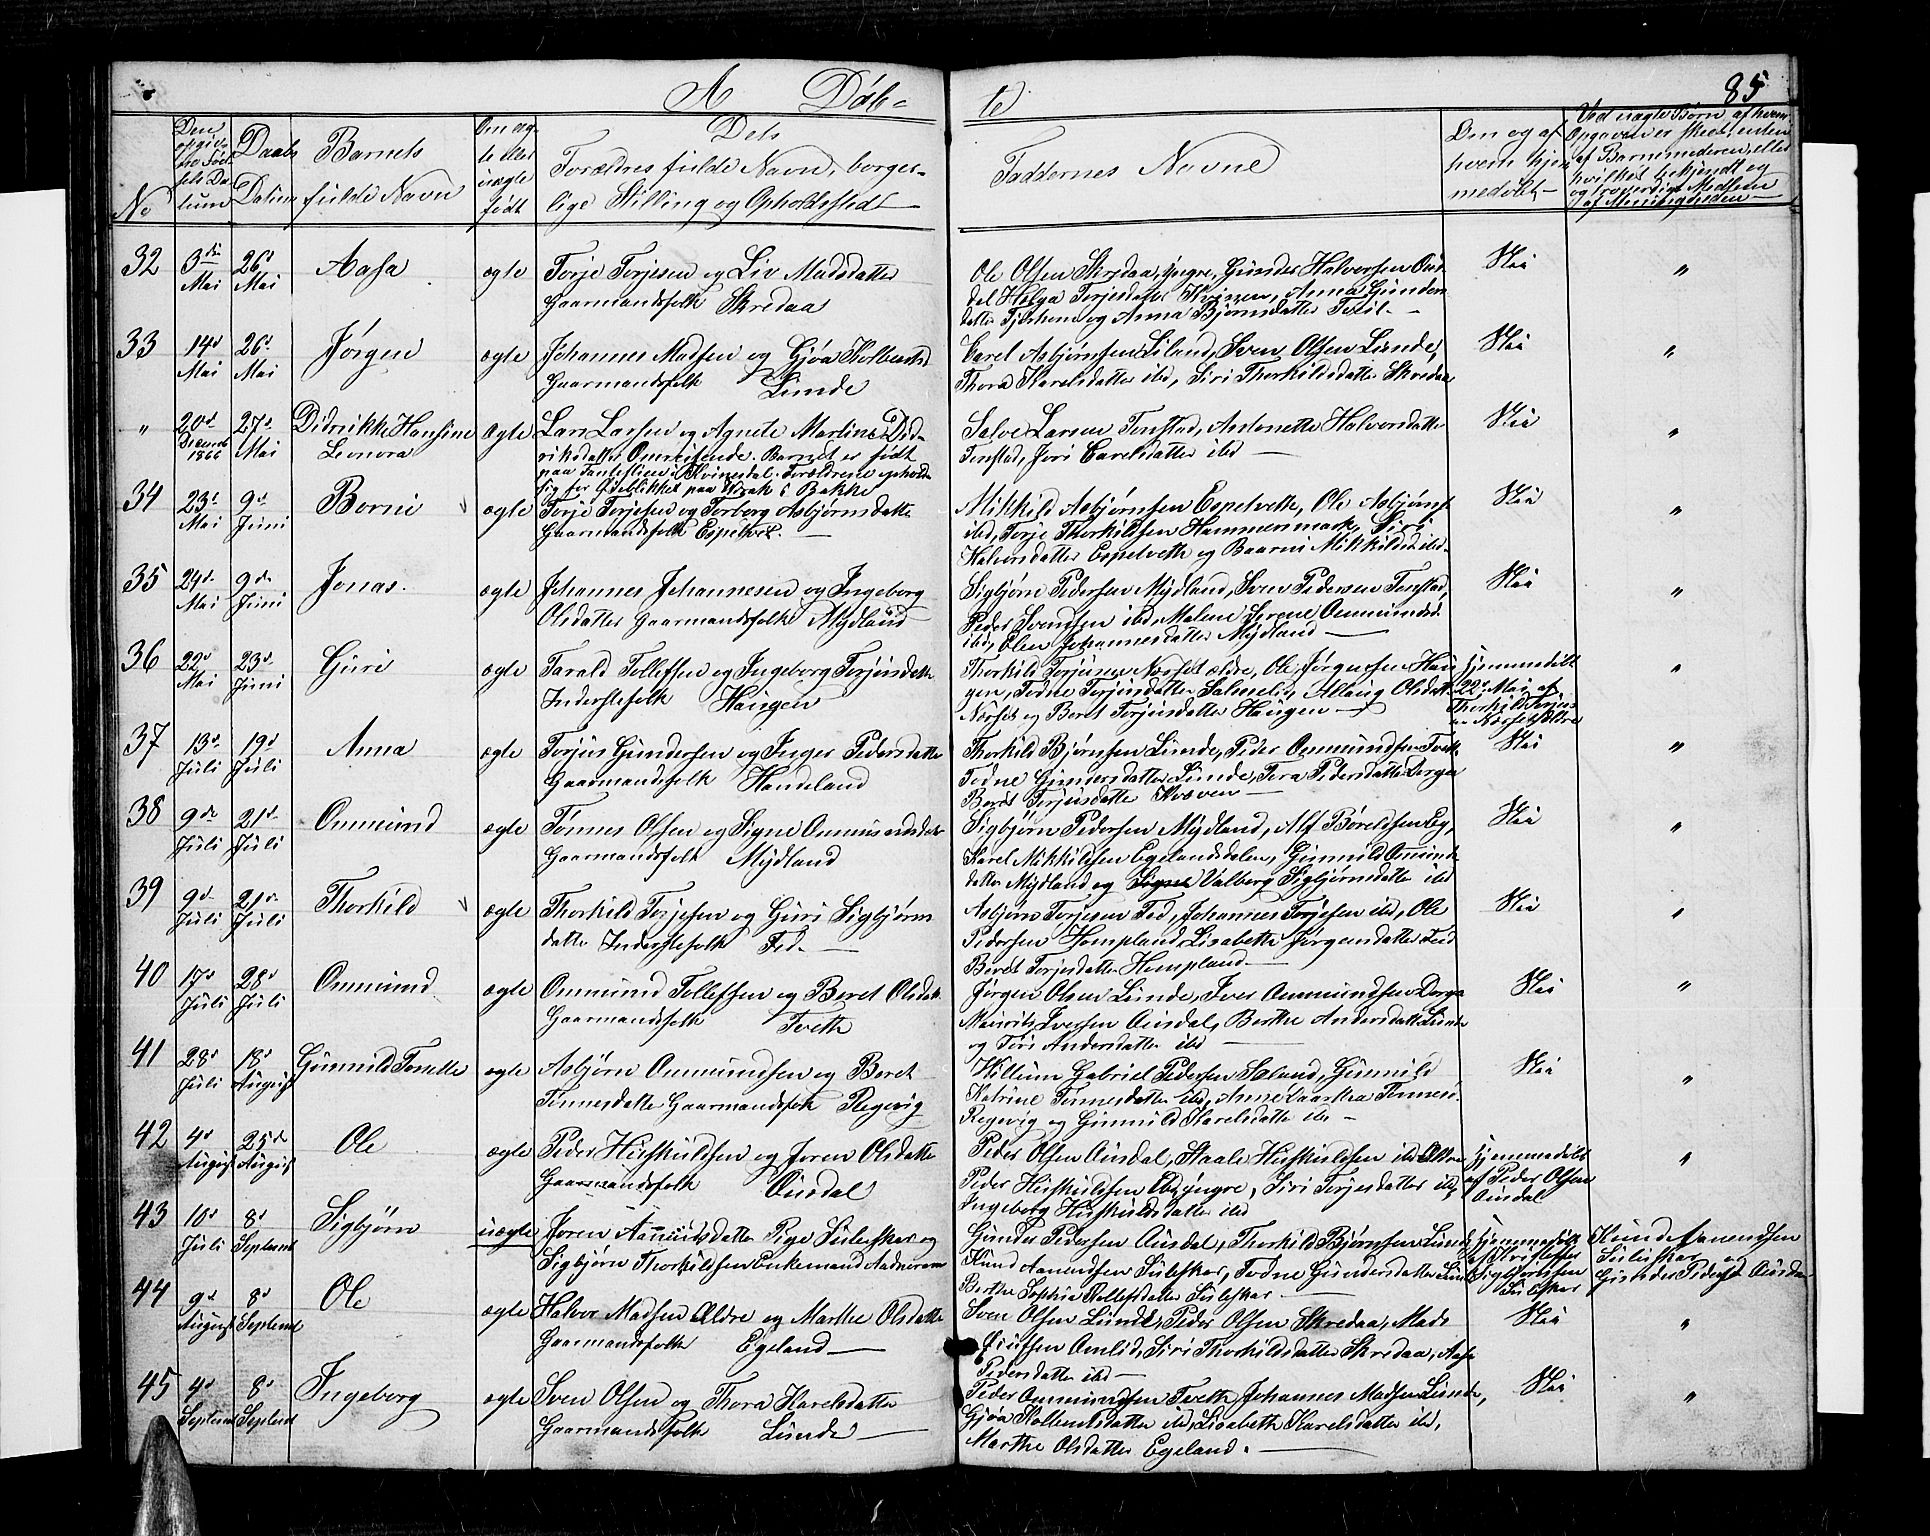 A Døb-
te
85
No
Den opgivne Fødsels Datum
Daabs Datum
Barnets fulde Navn
Om ægte eller uægte født
Dets Forældres fulde Navn, borgerlige Stilling og Opholdssted
Faddernes Navne
Om og af hvem hjemmedøbt
Ved uægte Børn af hvem Opgaven er skeet, enten af Barnemoderen, eller hvilket bekjendt og troværdigt Medlem af Menigheden
32 3die Mai 26d Mai Aasa ægte
Torje Torjesen og Liv Madsdatter
Gaarmandsfolk Skredaa
Ole Olsen Skredaa yngre, Gunder Halvorsen Ousdal
Helga Torjesdatter Kvinen, Anna Gundersdatter
Tjørhom og Anna Bjørnsdatter
Nei "
33 14d Mai 26d Mai Jørgen ægte
Johannes Madsen og Gjøa Kolbentsd
Gaarmandsfolk Lunde
Carel Asbjørnsen Liland, Sven Olsen Lunde,
Thora Karelsdatter ibd, Siri Thorkildsdatter Skredaa
Nei "
" 20d Decemb 1866 27d Mai Didrikke Hansine Leonora ægte
Lars Larsen og Agnete Martine Didriksdatter
Omreisende. Barnet er født
paa Fantestien i Kvinesdal. Forældrene opholde
sig for Øieblikket paa Kvak i Bakke
Salve Larsen Tonstad, Antonette Halvorsdatter
Tonstad, Jori Carelsdatter ibd
Nei "
34 23d Mai 9d Juni Borni ægte
Torje Torjesen og Torborg Asbjørnsdatter
Gaarmandsfolk Espetvet.
Mikkild Asbjørnsen Espetveth, Ole Asbjørns.
ibd, Torje Thorkildsen Hammermark, Siri
Halvorsdatter Espetveth og Baarni Mikkildsd ibd
Nei "
35 24d Mai 9de Juni Jonas. ægte
Johannes Johannesen og Ingeborg
Olsdatter Gaarmandsfolk Mydland
Sigbjørn Pedersen Mydland, Sven Pedersen Tonstad,
Peder Svensen ibd, Malene Serene Ommundsd
ibd, Olea Johannesdatter Mydland
Nei "
36 22d Mai 23d Juni Guri ægte
Tarald Tollefsen og Ingeborg Torjusdatter
Inderstefolk Haugen
Thorkild Torjusen Næsset ældre, Ole Jørgensen Haugen,
Todne Torjusdatter Salmeli, Allaug Olsdatt
Næsset og Beret Torjusdatter Haugen
Hjemmedøbt 22d Mai af Thorkild Torjusen Næsset ældre "
37 13d Juli 19d Juli Anna ægte
Torjus Gundersen og Inger Pedersdatter
Gaarmandsfolk Handeland
Thorkild Bjørnsen Lunde, Peder Ommundsen Tveth
Todne Gundersdatter Lunde, Tora Pedersdatter Dorga
Beret Torjusdatter Kvæven
Nei "
38 9de Juli 21d Juli Ommund ægte
Tønnes Olsen og Signe Ommundsdatter
Gaarmandsfolk Mydland
Sigbjørn Pedersen Mydland, Alf Børeldsen Eg,
Karel Mikkildsen Egelandsdalen, Gunnild Ommundsdatter
Mydland og Valborg Sigbjørnsdatter ibd
Nei "
39 9d Juli 21d Juli Thorkild ægte
Thorkild Torjesen og Guri Sigbjørnsdatter
Inderstefolk Fed.
Asbjørn Torjesen Fed, Johannes Torjesen ibd, Ole
Pedersen Hompland, Lisabeth Jørgensdatter Fed
Beret Torjesdatter Hompland
Nei "
40 17d Juli 28d Juli Ommund ægte
Ommund Tollefsen og Beret Olsdatt
Gaarmandsfolk Tveth
Jørgen Olsen Lunde, Iver Ommundsen Dorga
Maurits Iversen Ousdal, Berthe Andersdatter Lunde
og Tori Andersdatter ibd
Nei "
41 28d Juli 18d August Gunnild Tonette ægte
Asbjørn Ommundsen og Beret
Tønnesdatter Gaarmandsfolk Regevig
Willum Gabriel Pedersen Seland, Gunnild
Katrine Tønnesdatter ibd, Anne Tønnesd.
Regevig og Gunnuld Karelsdatter ibd
Nei "
42 4d August 25d August Ole ægte
Peder Huskuldsen og Joren Olsdatter
Gaarmandsfolk Ousdal
Peder Olsen Ousdal, Staale Huskuldsen ibd
Peder Huskuldsen ibd yngre, Siri Torjesdatter ibd
Ingeborg Huskuldsdatter ibd
Hjemmedøbt af Peder Olsen Ousdal "
43 10d Juli 8d Septemb Sigbjørn uægte
Joren Aanundsdatter Pige Suleskar og
Sigbjørn Thorkildsen Enkemand Aadneram
Gunder Pedersen Ousdal, Thorkild Bjørnsen Lunde,
Knud Aanundsen Suleskar, Todne Gundersdatter Lunde
Berthe Sophia Rollefsdatter Suleskar
Hjemmedøbt af Sigbjørnsen Suleskar
Knud Aanundsen Suleskar og Gunder Peders. Ousdal
44 9d August 8d Septemb Ole ægte
Halvor Madsen Ældre og Marthe Olsdatter
Gaarmandsfolk Egeland
Sven Olsen Lunde, Peder Olsen Skredaa, Mads
Omlid, Siri Thorkildsdatter Skredaa, Aasa
Pedersdatter ibd
Nei "
45 4d Septemb 8d Septemb Ingeborg ægte
Sven Olsen og Thora Karelsdatter
Gaarmandsfolk Lunde
Peder Ommundsen Tveth, Johannes Madsen Lunde,
Gjøa Kolbentsdatter ibd, Lisabeth Karelsdatter ibd,
Marthe Olsdatter Egeland.
Nei "